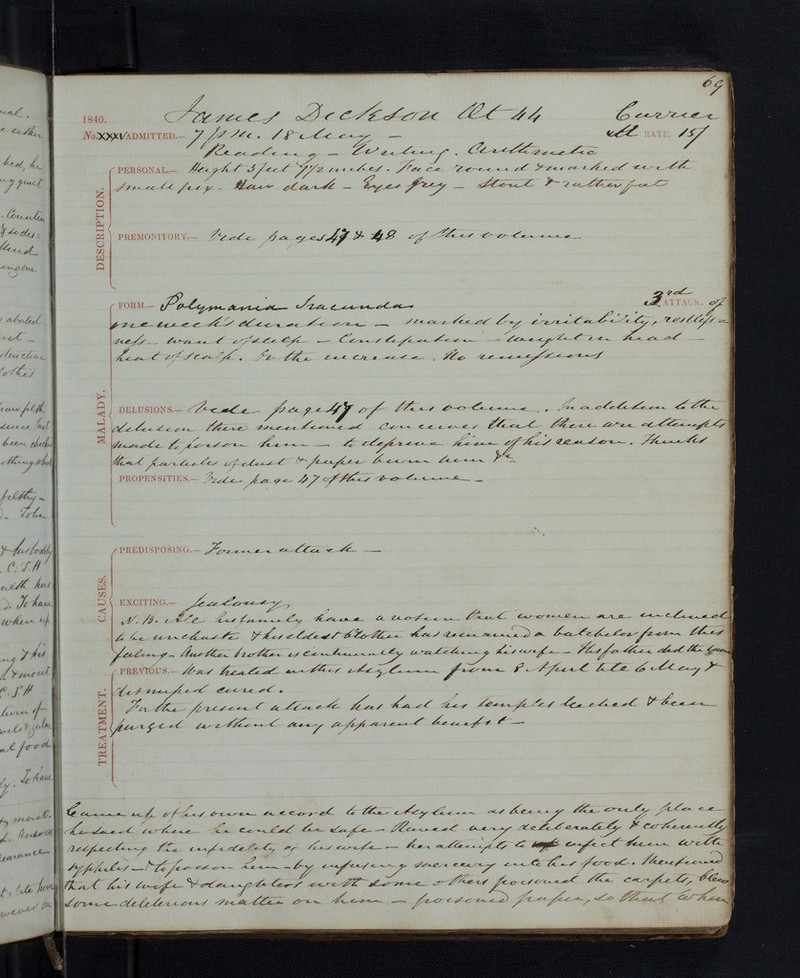 69
1840. James Dickson Æt 44 Currier
No. XXXV ADMITTED.— 7 p.m. 18 May — at RATE. 15/
Reading — Writing. Arithmetic
DESCRIPTION.
PERSONAL.— Height 5 feet 7 1/2 inches. Face round & marked with
small pox. Hair dark — Eyes grey — Stout & rather fat
PREMONITORY.— Vide pages 47 & 48 of this volume
MALADY.
FORM.— Polymania Iracunda 3rd ATTACK. of
one week's duration — marked by irritability, restless=
ness — want of sleep — Constipation — weight in head —
heat of scalp. In the increase. No remissions
DELUSIONS.— Vide page 47 of this volume. In addition to the
delusion there mentioned conceives that there are attempts
made to poison him — to deprive him of his reason. Thinks
that particles of dust & paper burn him &c
PROPENSITIES.— Vide page 47 of this volume —
CAUSES.
PREDISPOSING.— Former attack —
EXCITING.— Jealousy
N.B. All his family have a notion that women are inclined
to be unchaste & his eldest brother has remained a batchelor from this
feeling. Another brother is continually watching his wife — His father did the same
TREATMENT.
PREVIOUS.— Was treated in this Asylum from 8 April till 6 May &
dismissed cured.
For the present attack has had his temples leeched & been
purged without any apparent benefit —
Came up of his own accord to the Asylum as being the only place
he said where he could be safe — Raved very deliberately & coherently
respecting the infidelity of his wife — her attempts to infect him with
syphilis — & to poison him — by infusing mercury into his food. Mentioned
that his wife & daughters with some others poisoned the carpets, blew
some deleterious matter on him — poisoned paper, so that when